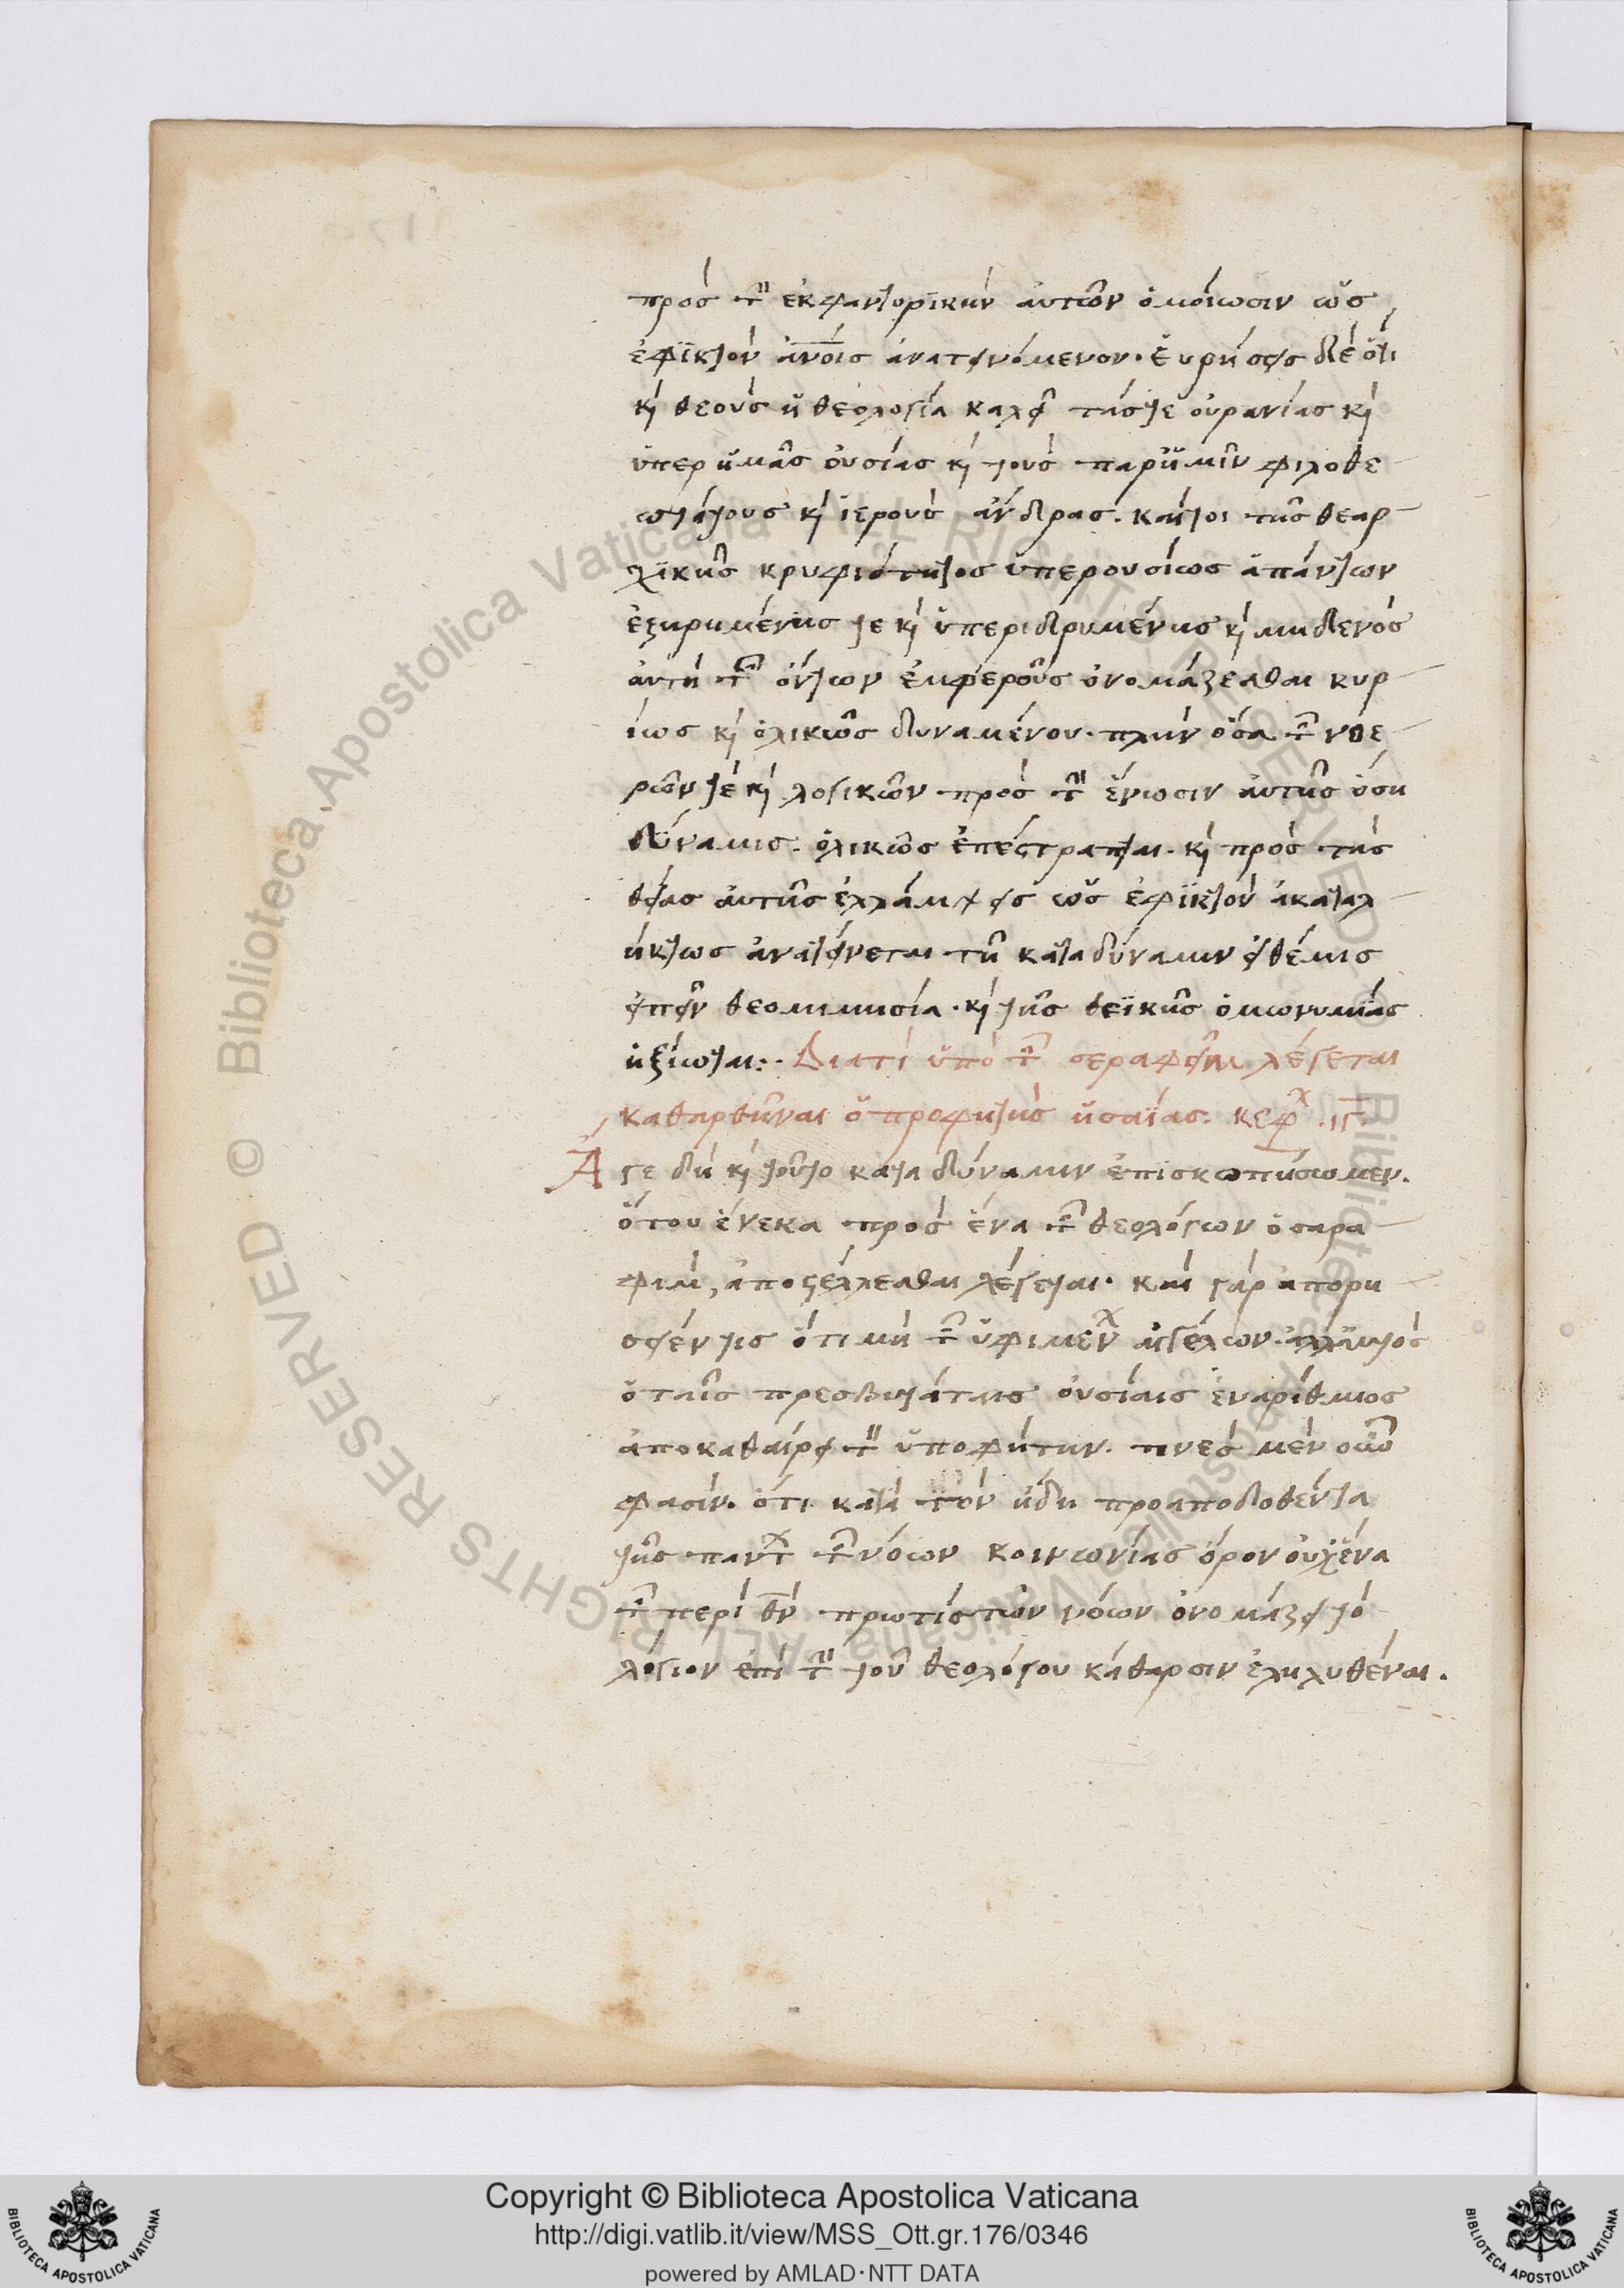 πρὸς τὴν ἐκφαντορικὴν αὐτῶν ὁμοίωσιν ὡς
ἐφϊκτὸν ἀνοις ἀνατεινόμενον. εὑρήσεις δὲ ὅτι
κὶ θεοὺς ἡ θεολογία καλεῖ τάς τε οὐρανίας κὶ
ὑπερ ἡμᾶς οὐσίας κὶ τοὺς παρ ἡμῖν φιλοθε
ωτάτους κὶ ἱεροὺς ἄνδρας. καίτοι τῆς θεαρ
χϊκῆς κρυφιότητος ὑπερουσίως ἁπάντων
ἐξηρημένης τε κὶ ὑπεριδρυμένης κὶ μηδενὸς
αὐτῆ τῶν ὄντων ἐμφεροῦς ὀνομάζεσθαι κυρ
ίως κὶ ὁλικῶς δυναμένου. πλὴν ὅσα τῶν νοε
ρῶν τὲ κὶ λογικῶν πρὸς τὴν ἕνωσιν αὐτῆς ὅση
δύναμις. ὁλικῶς ἐπέστραπται. κὶ πρὸς τὰς
θείας αὐτῆς ἐλλάμψεις ὡς ἐφϊκτὸν ἀκαταλ
ήκτως ἀνατείνεται τῆ κατα δύναμιν εἰ θέμις
εἰπεῖν θεομιμησία. κὶ τῆς θεϊκῆς ὁμωνυμίας
ἠξίωται:· Διατί ὑπὸ τῶν σεραφεὶμ λέγεται
καθαρθῆναι ὁ προφήτης ἡσαΐας. κεφλ ιγ.
Ἄγε δὴ κὶ τοῦτο κατα δύναμιν ἐπισκωπήσωμεν.
ὅτου ἕνεκα πρὸς ἕνα τῶν θεολόγων ὁ σαρα
φιμ, ἀποστέλλεσθαι λέγεται. καὶ γὰρ ἀπορη
σειέν τις ὅτι μὴ τῶν ὑφιμένων ἀγγέλων. ἀλλαυτὸς
ὁ ταῖς πρεσβυτάταις οὐσίαις ἐναρίθμιος
ἀποκαθαίρει τὴν ὑποφήτην. τινὲς μὲν οὖν
φασίν. ὅτι κατὰ τὸν ἤδη προαποδοθέντα
τῆς πάντων τῶν νόων κοινωνίας ὅρον οὐχ ἕνα
τῶν περὶ θν πρωτίστων νόων ὀνομάζει τὸ
λόγιον ἐπὶ τὴν τοῦ θεολόγου κάθαρσιν ἐληλυθέναι.
Copyright © Biblioteca Apostolica Vaticana
http://digi.vatlib.it/view/MSS_Ott.gr.176/0346
powered by AMLAD·NTT DATA